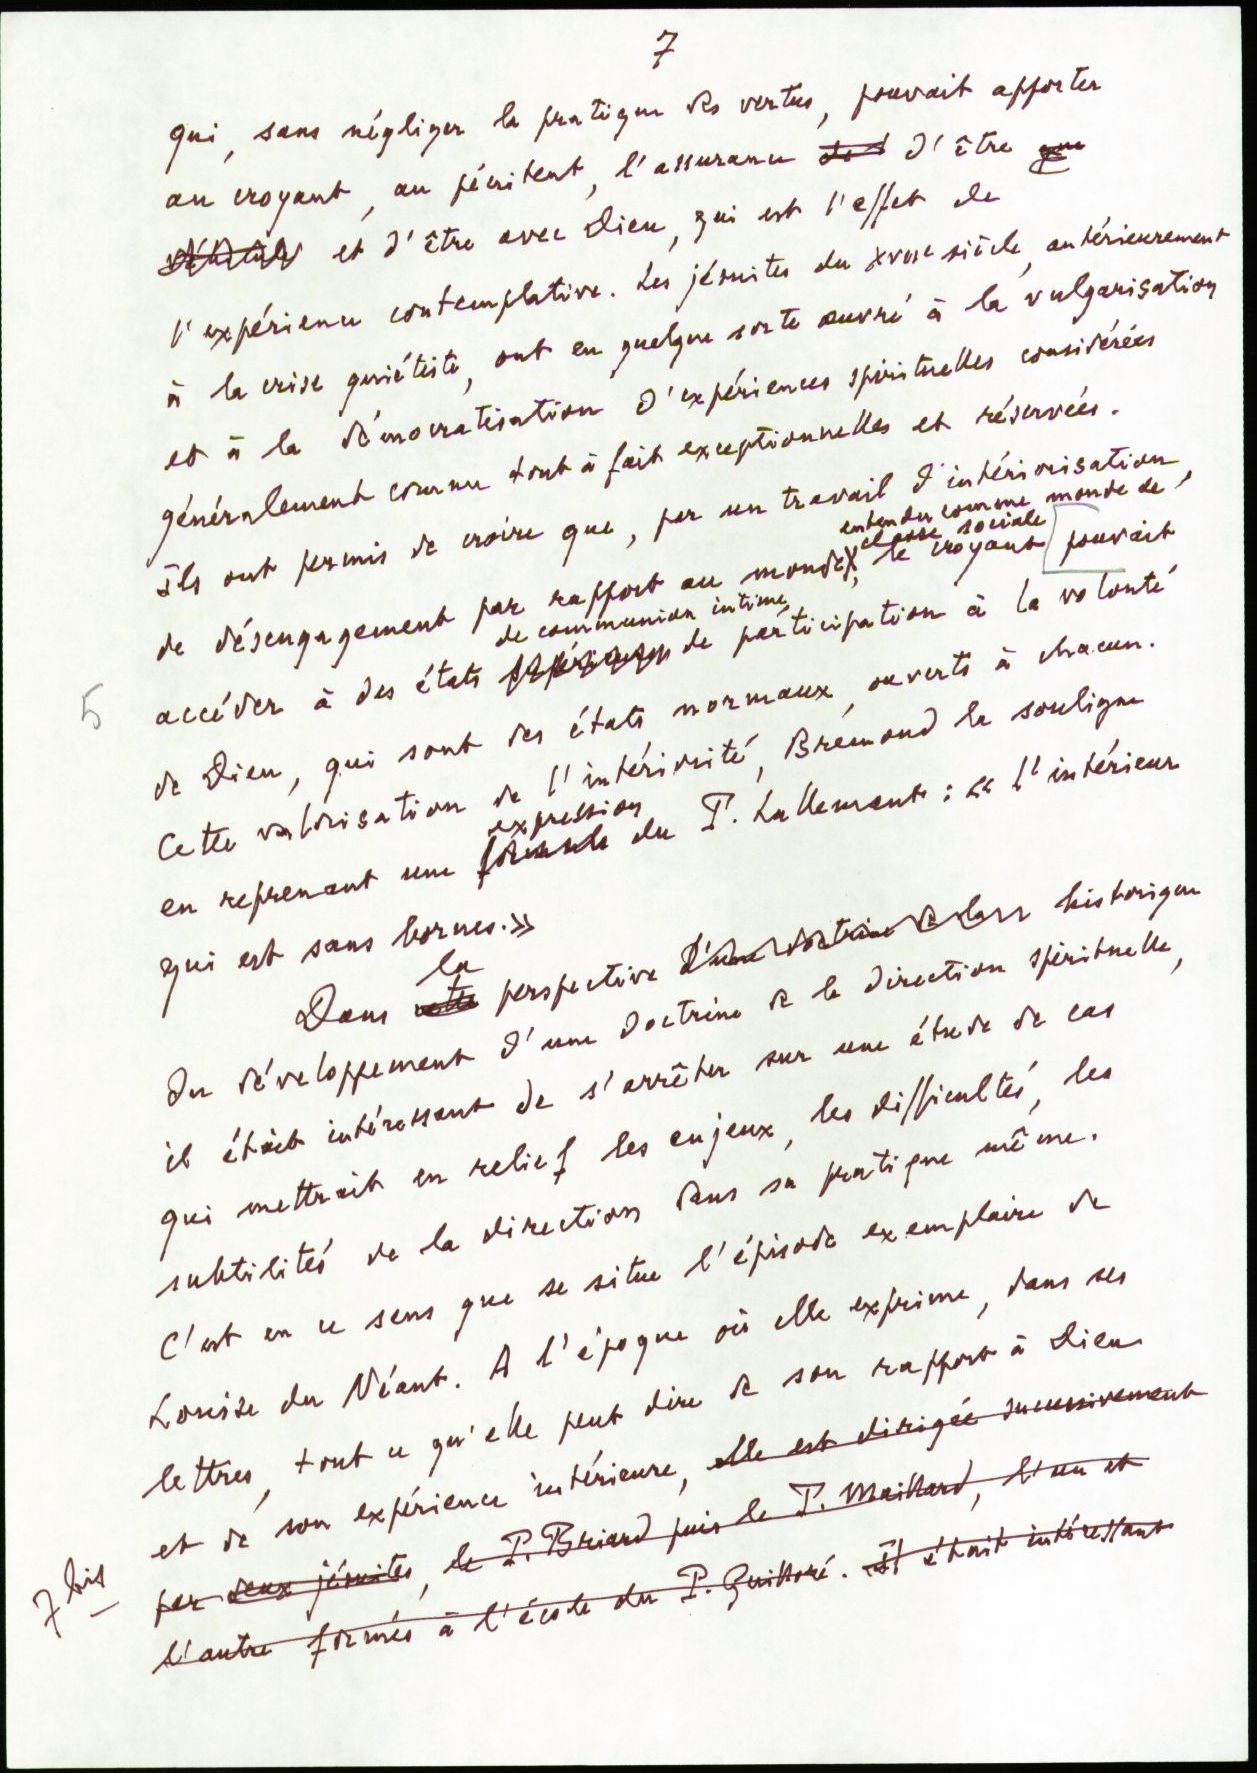 7
qui, sans négliger la pratique des vertus, pouvait apporter
au croyant, au pénitent, l'assurance d'être que
et d'être avec Dieu, qui est l'effet de
l'expérience contemplative. Les jésuites du XVIIe siècle, antérieurement
à la crise quiétiste, ont en quelque sorte œuvré à la vulgarisation
et à la démocratisation d'expériences spirituelles considérées
généralement comme tout à fait exceptionnelles et réservées.
Ils ont permis de croire que, par un travail d'intériorisation,
entendu comme monde de
classe sociale
de désengagement par rapport au monde, le croyant pouvait
de communion intime,
accéder à des états de participation à la volonté
5
de Dieu, qui sont des états normaux, ouverts à chacun.
Cette valorisation de l'intériorité, Bremond la souligne
expression
en reprenant une formule du P. Lallemant : « l'intérieur
qui est sans bornes.»
la
Dans cette perspective d'une doctrine de historique
du développement d'une doctrine de la direction spirituelle,
il était intéressant de s'arrêter sur une étude de cas
qui mettrait en relief les enjeux, les difficultés, les
subtilités de la direction dans sa pratique même.
C'est en ce sens que se situe l'épisode exemplaire de
Louise du Néant. A l'époque où elle exprime, dans ses
lettres, tout ce qu'elle peut dire de son rapport à Dieu
et de son expérience intérieure, elle est dirigée successivement
7 bis
par deux jésuites, le P. Briard puis le P. Maillard, l'un et
l'autre formés à l'école du P. Guilloré. Il était intéressant